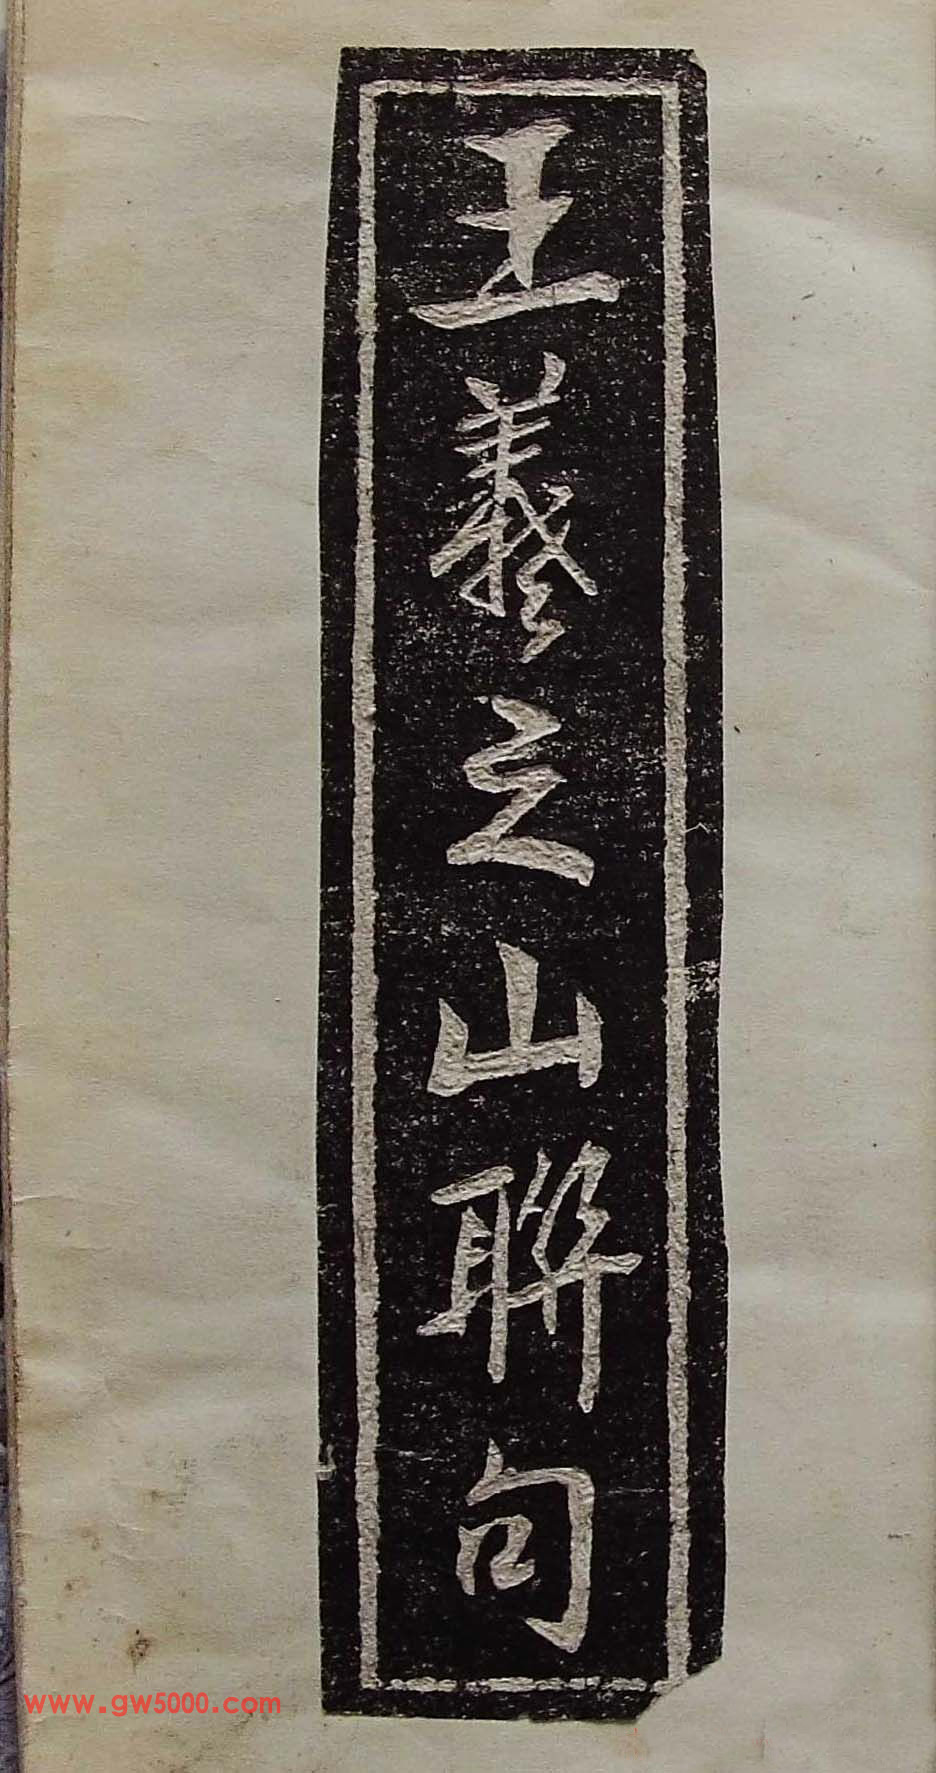 王羲之山聯句
www.gw5000.com